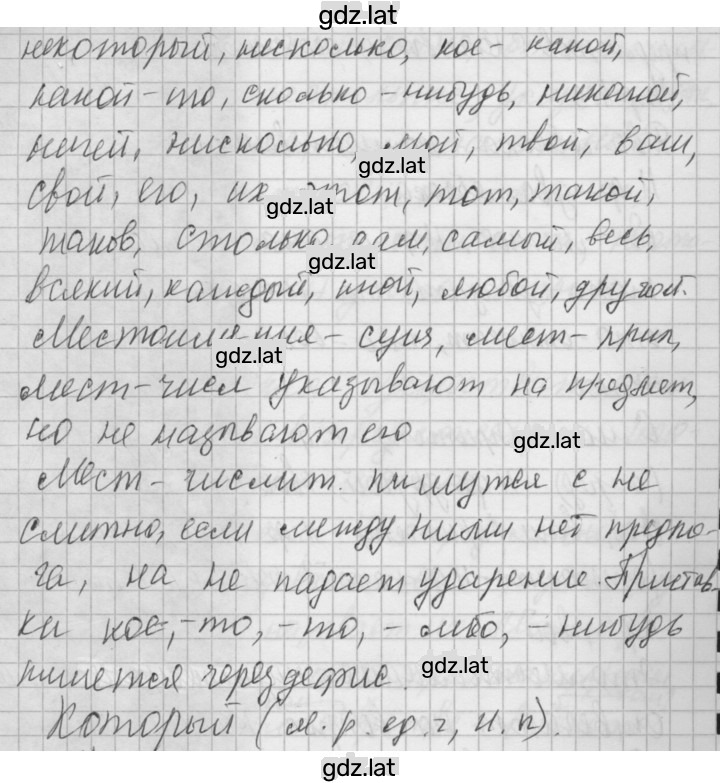 gdz.lat
некоторый, несколько, кое-какой,
какой-то, сколько-нибудь, никакой,
ничей, нисколько, мой, твой, ваш,
gdz.lat
свой, его, их, этот, тот, такой,
gdz.lat
таков, столько, сам, самый, весь,
gdz.lat
всякий, каждый, иной, любой, другой.
Местоимения-сущ, мест-прил,
gdz.lat
мест-числ указывают на предмет,
но не называют его
gdz.lat
Мест-числит. пишутся с не
слитно, если между ними нет предло-
га, на не падает ударение. Пристав-
ки кое,-то, -то, -либо, -нибудь
пишется через дефис.
gdz.lat
Который (м.р. ед.ч, и.п).
gdz.lat